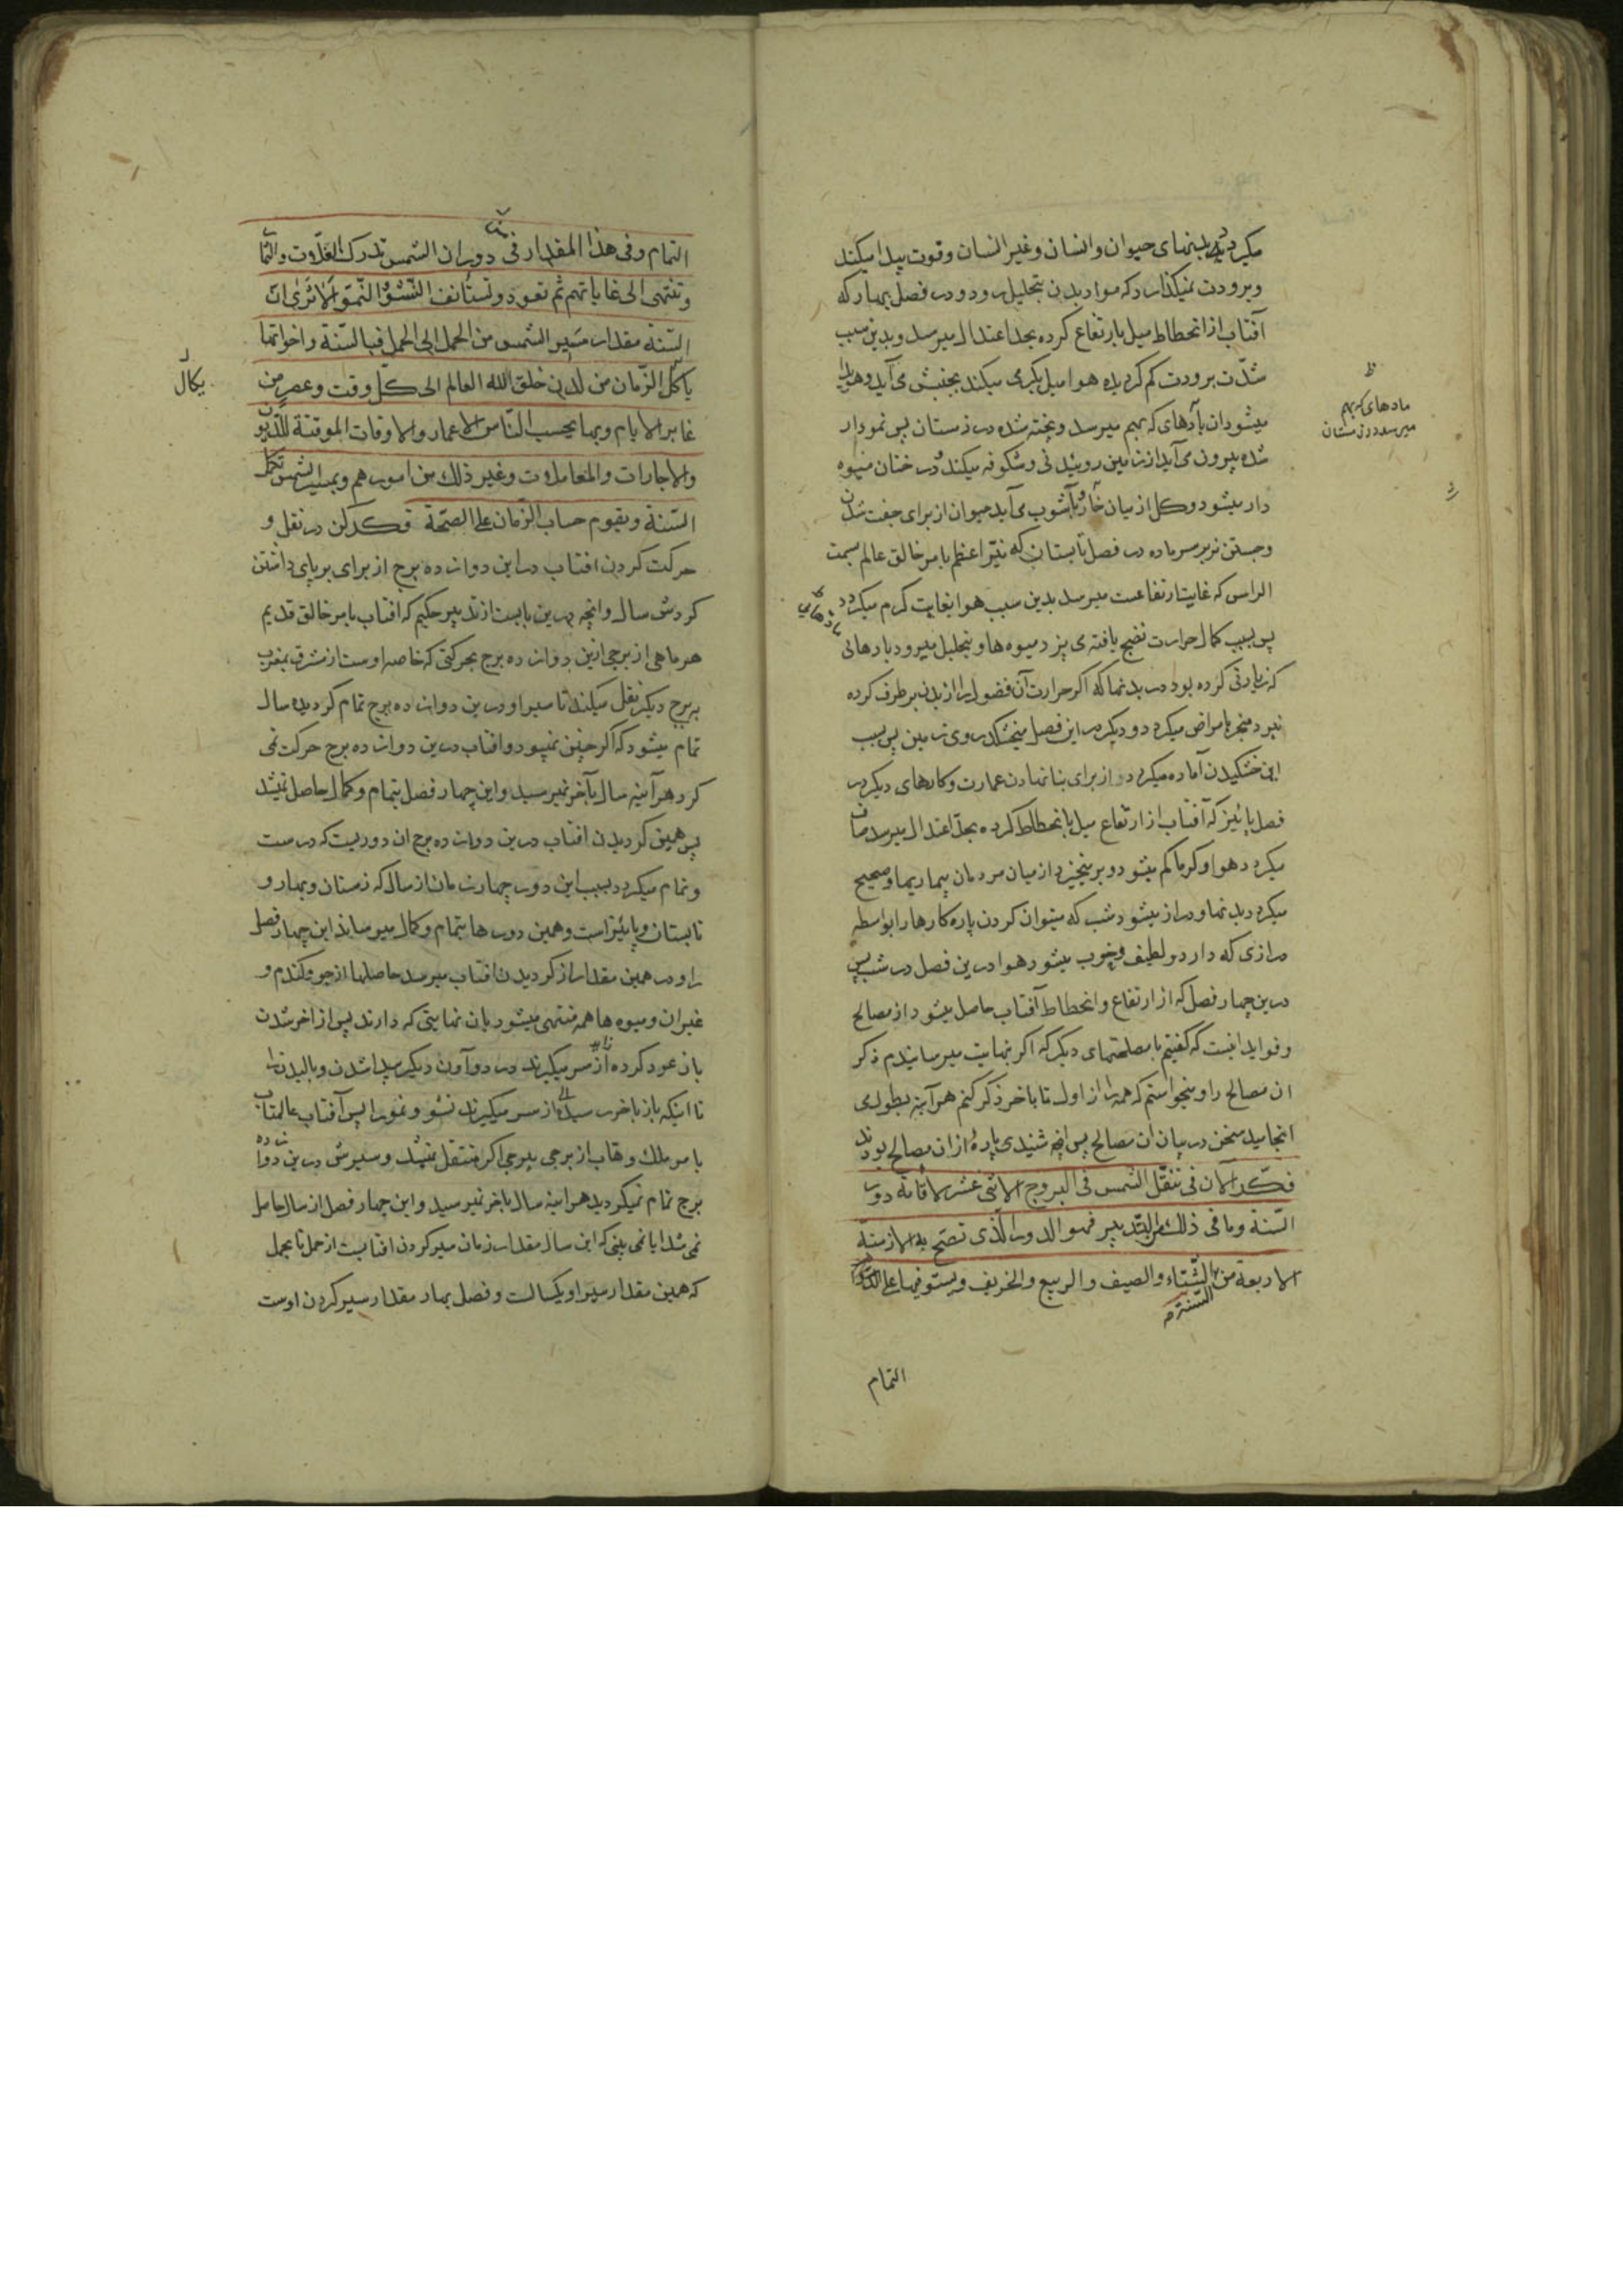 میکردد بدنهای حیوان وانسان وغیر انسان وقوت پیدا میکند
وبرودت نمیکذارد که مواد بدن بتحلیل رود ودر فصل بهار که
آفتاب از انحطاط میل بارتفاع کرده بحد اعتدال میرسد وبدین سبب
شدّت برودت کم کردیده هوا میل بکرمی میکند بجنبش می آید وهویدا
میشود ان مادهای که بهم میرسد وپخته شده در زمستان پس نمودار
شده بیرون می آید از زمین روئیدنی وشکوفه میکند ودرختان میوه
دار میشود وکل از میان خار وبآشوب می آید حیوان از برای جفت شدن
وجستن نر بر سر ماده در فصل تابستان که نیّر اعظم بامر خالق عالم بسمت
الراس که غایت ارتفاعست میرسد بدین سبب هوا بغایت کرم میکردد
پس بسبب کمال حرارت نضج یافته می پزد میوه ها وبتحلیل میرود
که زیادتی کرده بود در بدنها که اکر حرارت آن فضول را از بدن بر طرف کرده
نبرد منجر بامراض میکردد ودیکر در این فصل میخشکد روی زمین پس بسبب
این خشکیدن آماده میکردد از برای بنا نهادن عمارت وکارهای دیکر در
فصل پائیز که آفتاب از ارتفاع میل بانحطاط کرده بحدّ اعتدال میرسد صاف
میکردد هوا وکرما کم میشود وبر میخیزد از میان مردمان بیماریها وصحیح
میکردد بدنها ودراز میشود شب که میتوان کردن پاره کارها را بواسطه
درازی که دارد ولطیف وخوب میشود هوا درین فصل در شب پس
درین چهار فصل که از ارتفاع وانحطاط آفتاب حاصل میشود از مصالح
وفواید اینست که کفتیم با مصلحتهای دیکر که اکر بنهایت میرسانیدم ذکر
ان مصالح را ومیخواستم که همه را از اول تا باخر ذکر کنم هر آینه بطول می
انجامید سخن در بیان ان مصالح پس انچه شنیدی پارهٔ از ان مصالح بودند
فکّر الآن فی تنقّل الشمس فی البروج الاثنی عشر لاقامة دور
السّنة وما فی ذلک من التّدبیر فهو الدور الّذی تصحّ به الازمنة
الاربعة من السّنة الشّتاء والصیف والربیع والخریف ویستوفیها علی
التمام
مادهای که بهم
میرسد در زمستان
التمام وفی هذا المقدار من دوران الشمس تدرک الغلّات والثّما
وتنتهی الی غایاتهم ثم تعود وتستأنف النّشؤ والنّموّ الا تری انّ
السّنة مقدار مسیر الشمس من الحمل الی الحمل فبالسّنة واخواتها
یکال الزّمان من لدن خلق الله العالم الی کلّ وقت وعصر من
غابر الایام وبها یحسب النّاس الاعمار والاوقات الموقتة للدّیون
والاجارات والمعاملات وغیر ذلک من امورهم وبمسیر الشمس تکمل
السّنة ویقوم حساب الزّمان علی الصّحة فکر کن در نقل و
حرکت کردن افتاب در این دوازده برج از برای برپای داشتن
کردش سال وانچه درین بابست از تدبیر حکیم که افتاب بامر خالق قدیم
هر ماهی از برجی ازین دوازده برج بحرکتی که خاصه اوست از مشرق بمغرب
ببرج دیکر نقل میکند تا سیر او درین دوازده برج تمام کردیده سال
تمام میشود که اکر چنین نمیبود وافتاب درین دوازده برج حرکت نمی
کرد هر آینه سال بآخر نمیرسید واین چهار فصل بتمام وکمال حاصل نمیشد
پس همین کردیدن افتاب درین دوازده برج ان دوریست که درست
وتمام میکردد بسبب این دور چهار زمان از سال که زمستان وبهار و
تابستان وپائیز است وهمین دورها بتمام وکمال میرساند این چهار فصل
را ودر همین مقدار از کردیدن افتاب میرسد حاصلها از جو وکندم و
غیران ومیوه ها همه منتهی میشود بان نهایتی که دارند پس از اخر شدن
باز عود کرده از سر میکیرند در دو آون دیکر پیدا شدن وبالیدن را
تا اینکه باز باخر رسید از سر میکیرند نشو ونمو را پس آفتاب عالمتاب
بامر ملک وهاب از برجی ببرجی اکر منتقل نمیشد وسیرش درین دوازده
برج تمام نمیکردید هر اینه سال باخر نمیرسید واین چهار فصل از سال حاصل
نمی شد ایا نمی بینی که این سال مقدار زمان سیر کردن افتابست از حمل تا بحمل
که همین مقدار سیر او یکسالست وفصل بهار مقدار سیر کردن اوست
یکال